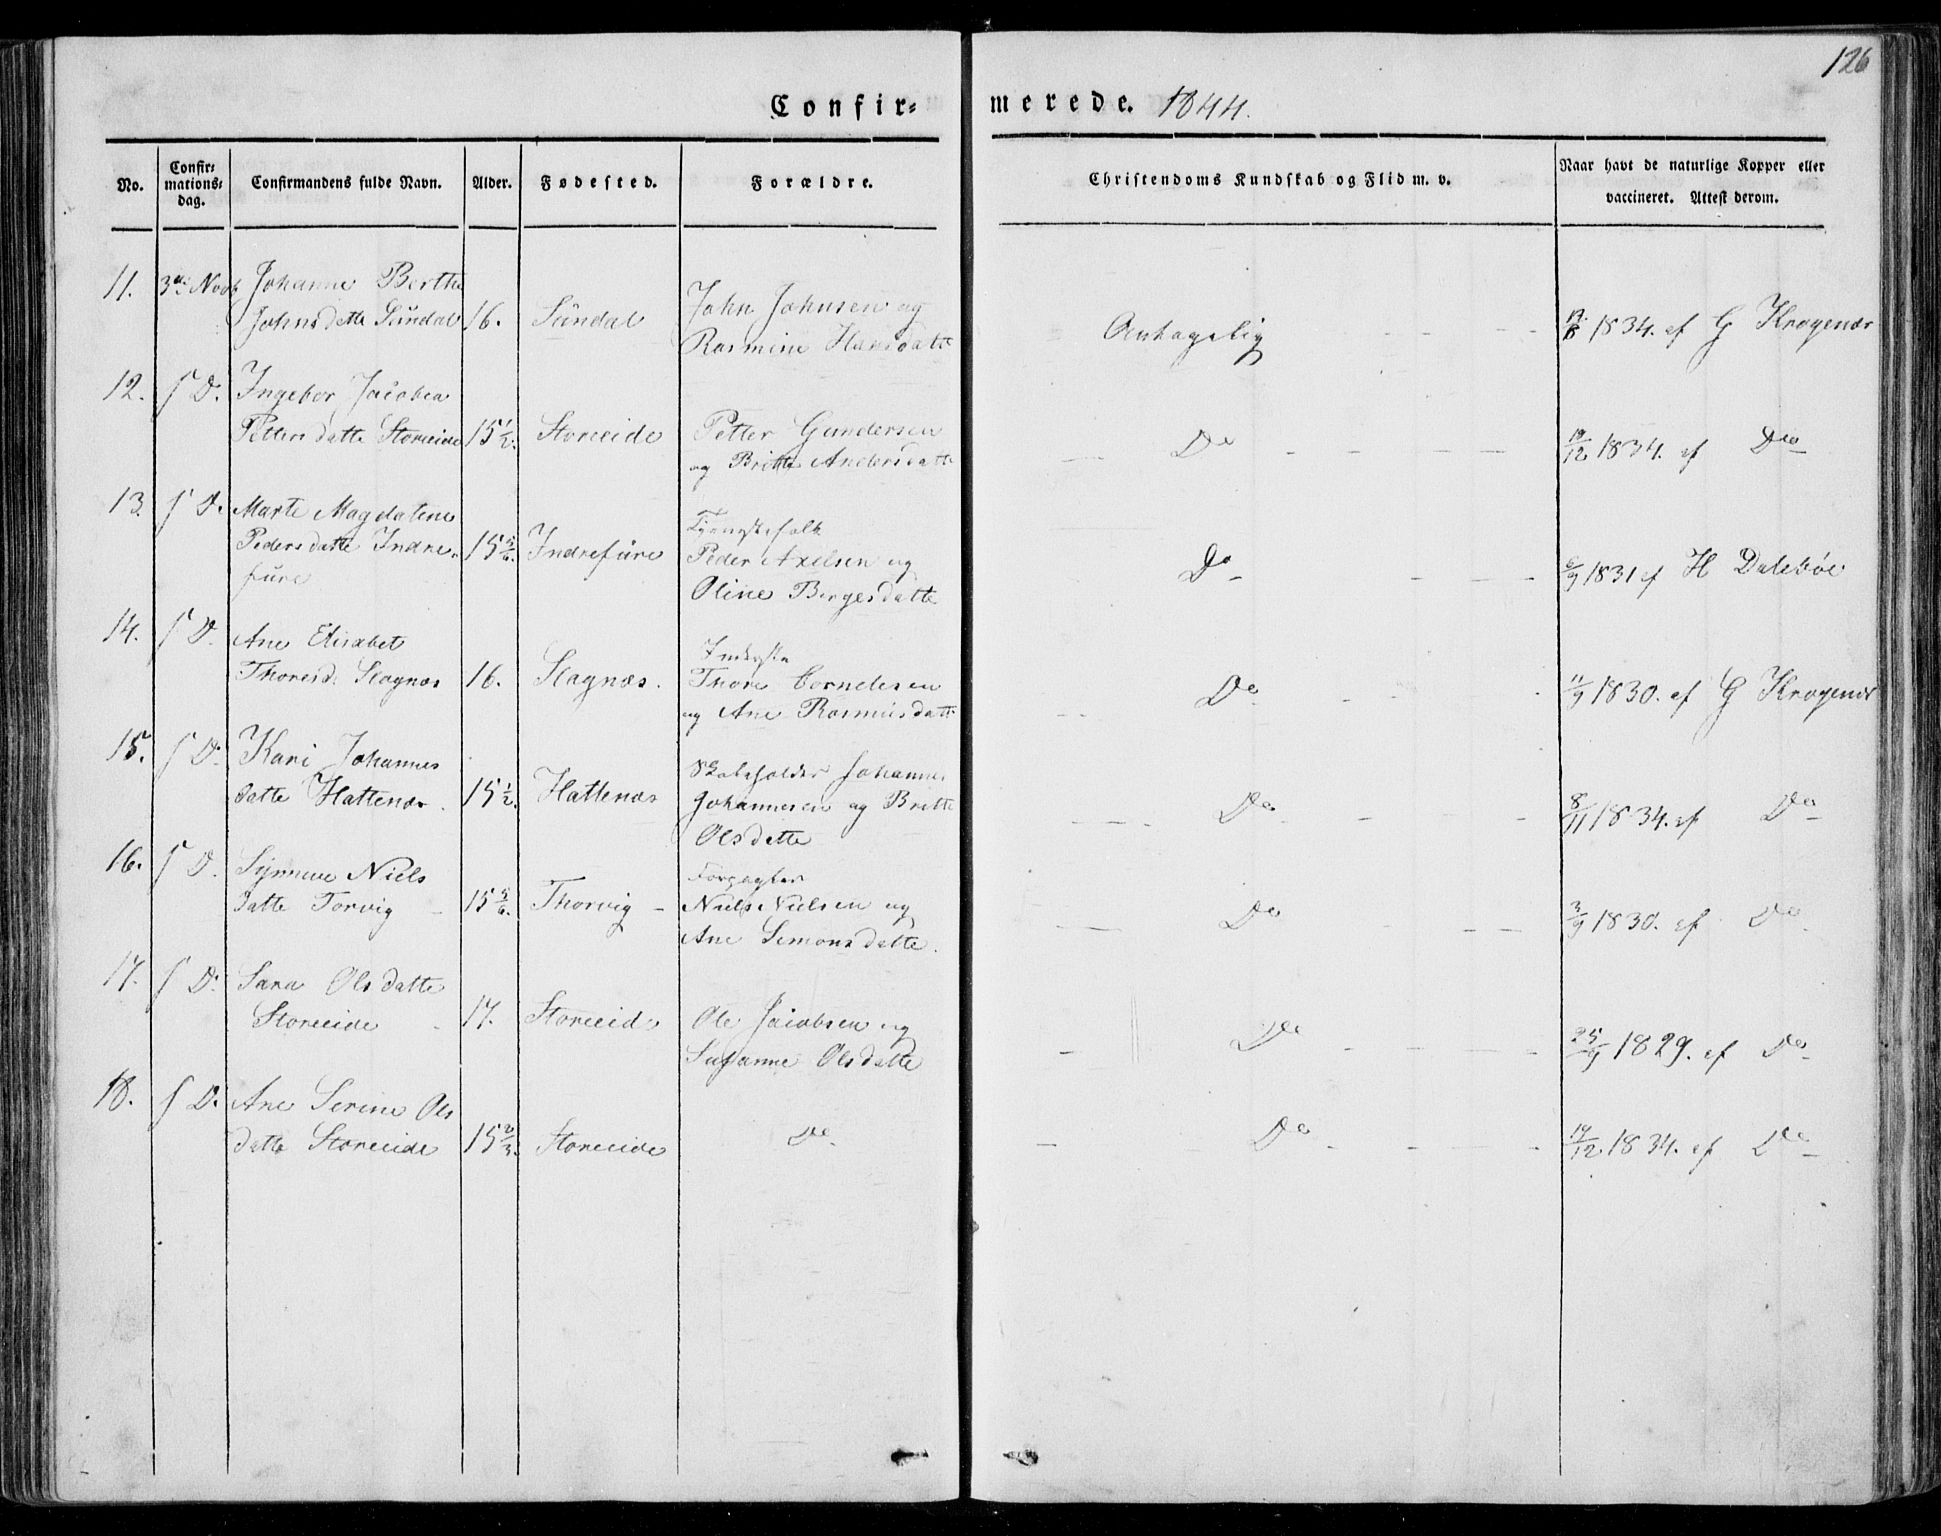 126
Confir=
merede. 1844.
No.
Confir=
mations=
dag.
Confirmandens fulde Navn.
Alder.
Fødested.
Forældre.
Christendoms Kundskab og Flid m. v.
Naar havt de naturlige Kopper eller
vaccineret. Attest derom.
11. Johanne Berthe
Johnsdatte Sundal 16. Sundal John Johnsen og
Rasmine Hansdatte
Antagelig 1834. af G Kragenæs
12. D. Ingebor Jacobea
Petters datte Storeeide 15 1/2. Storeeide Petter Gundersen
og Britte Andersdatte
Do 19/12 1834. af Do
13. D. Marte Magdalene
Peders datte Indre-
fure 15 5/6. Indrefure
Tjenestefolk
Peder Axelsen og
Oline Borgesdatte
Do 6/9 1831 af H Dalebøe
14. D. Ane Elisabet
Thoresd. Slagnæs 16. Slagnæs.
Inderste
Thore Cornelesen
og Ane Rasmusdatte
Do 11/9 1830. af G Kragenæs
15. D. Kari Johannes
datte Hattenæs. 15 1/2. Hattenæs
Johannes
Johannesen og Britte
Olsdatte
Do 8/11 1834. af Do
16. D. Synneve Niels
datte Torvig 15 5/6. Thorvig
Forpagter
Niels Nielsen og
Ane Simonsdatte.
Do 3/9 1830. af Do
17. D. Sara Olsdatte
Storeeide 17. Storeeide Ole Jacobsen og
Susanne Olsdatte
Do 25/9 1829. af Do
18. D. Ane Serine Ols
datte Storeeide 15 2/3. Storeeide Do
Do 19/12 1834. af Do